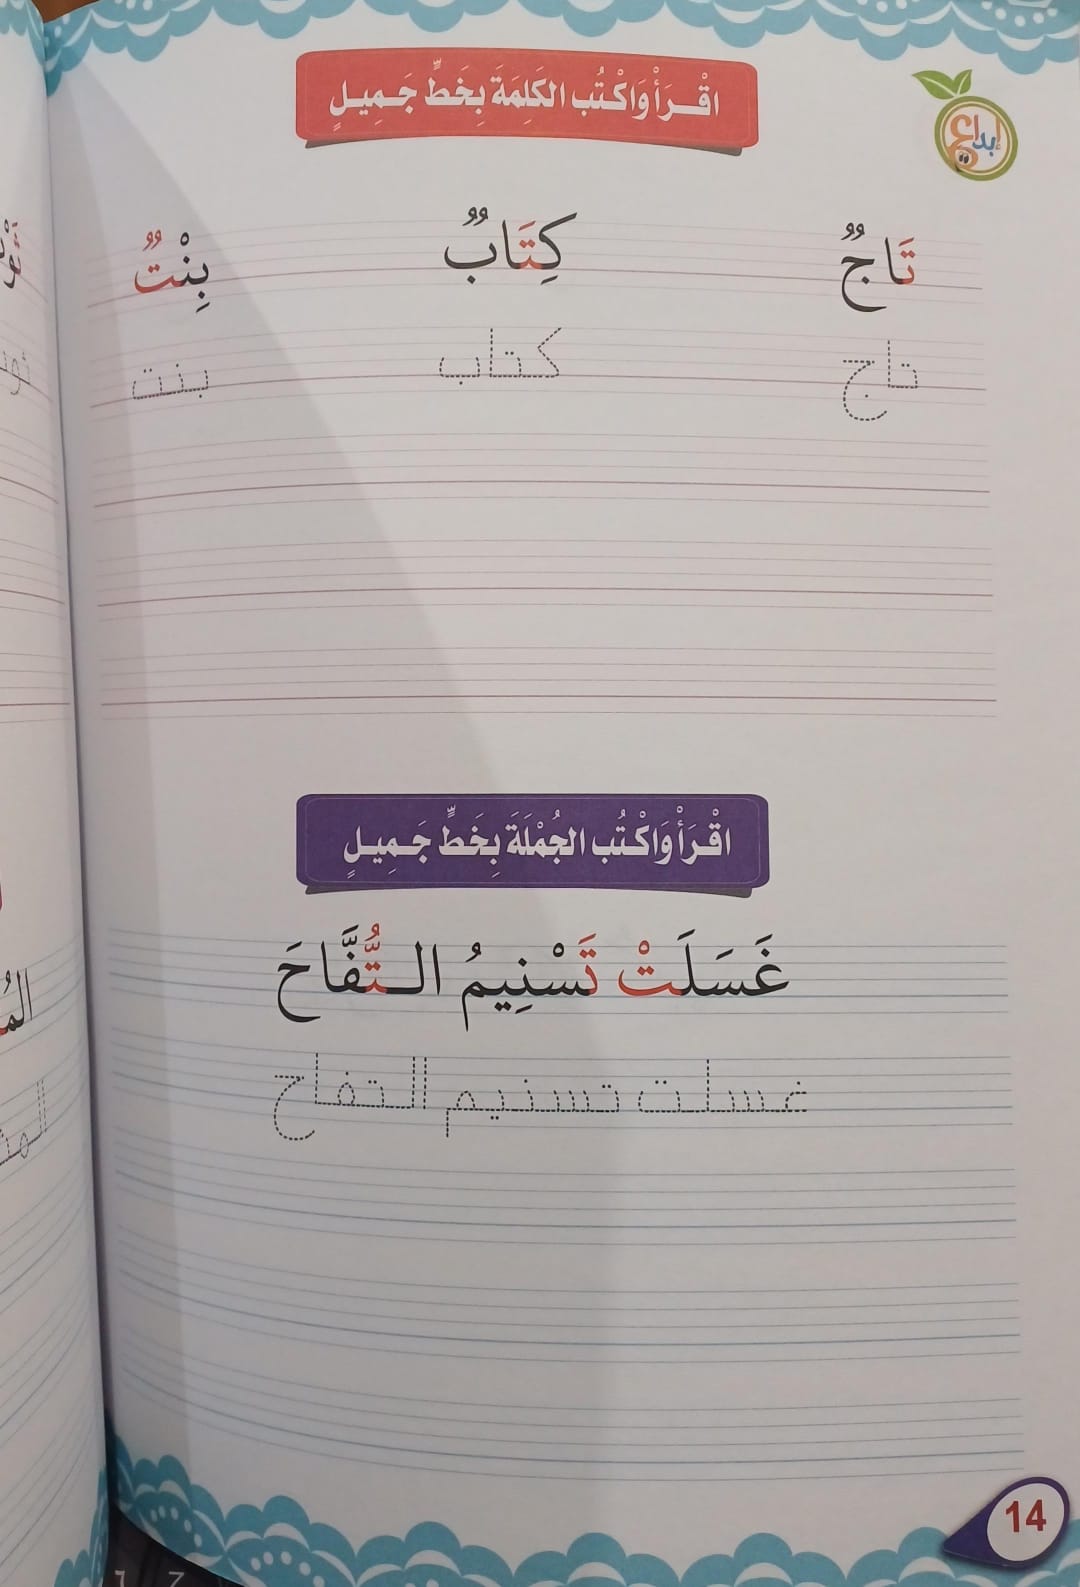 اقْرَأْ وَاكْتُب الكَلِمَةَ بِخَطٍّ جَمِيلٍ
إبداع
تَاجٌ كِتَابٌ بِنْتٌ
تاج كتاب بنت
اقْرَأْ وَاكْتُب الجُمْلَةَ بِخَطٍّ جَمِيلٍ
غَسَلَتْ تَسْنِيمُ الـتُّفَّاحَ
غسلت تسنيم التفاح
14